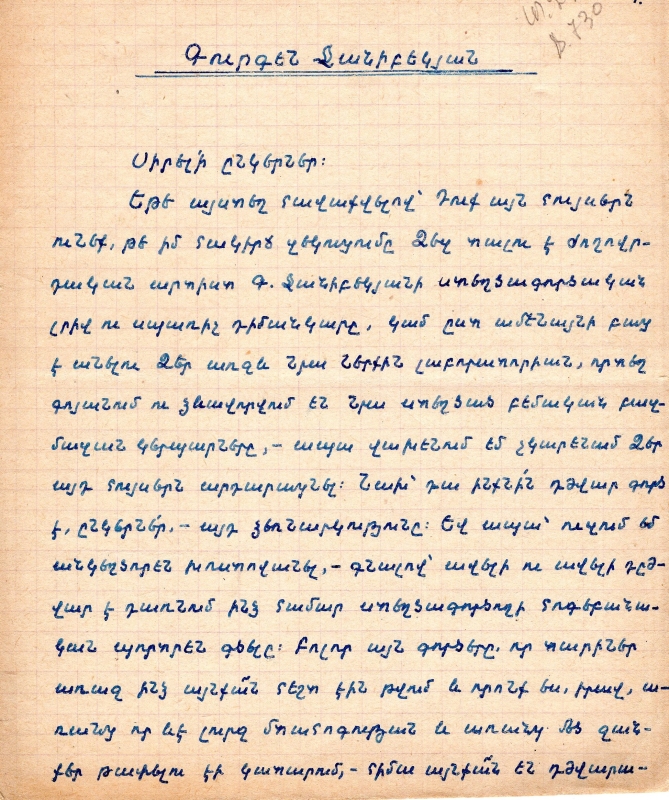 Գուրգէն Ջանիբէկյան
Սիրելի՛ ընկերներ։
Եթե այստեղ հավաքվելով՝ Դուք այն հույսերն
ունեք, թե իմ համառոտ զեկուցումը Ձեզ տալու է ժողովր-
դական արտիստ Գ. Ջանիբեկյանի ստեղծագործական
լրիվ ու սպառիչ դիմանկարը, կամ ըստ ամենայնի բաց
է անելու Ձեր առջև նրա ներքին լաբորատորիան, որտեղ
գոյանում ու ձևավորվում են նրա ստեղծած բեմական բազ-
մազան կերպարները,- ապա վախենում եմ չկարենամ Ձեր
այդ հույսերն արդարացնել։ Նախ՝ դա ինքնի՛ն դժվար գործ
է, ընկերնե՛ր,- այդ ձեռնարկությունը։ Եվ ապա՝ ուզում եմ
անկեղծորեն խոստովանել,- գնալով՝ ավելի ու ավելի դըժ-
վար է դառնում ինձ համար ստեղծագործողի հոգեբանա-
կան պրոֆիլը գծելը։ Բոլոր այն գործերը, որ տարիներ
առաջ ինձ այնքա՜ն հեշտ էին թվում և որոնք ես, իրավ, ա-
ռանց որևէ լուրջ մտահոգության և առանց մեծ ջան-
քեր թափելու էի կատարում,- հիմա այնքա՜ն են դժվարա-